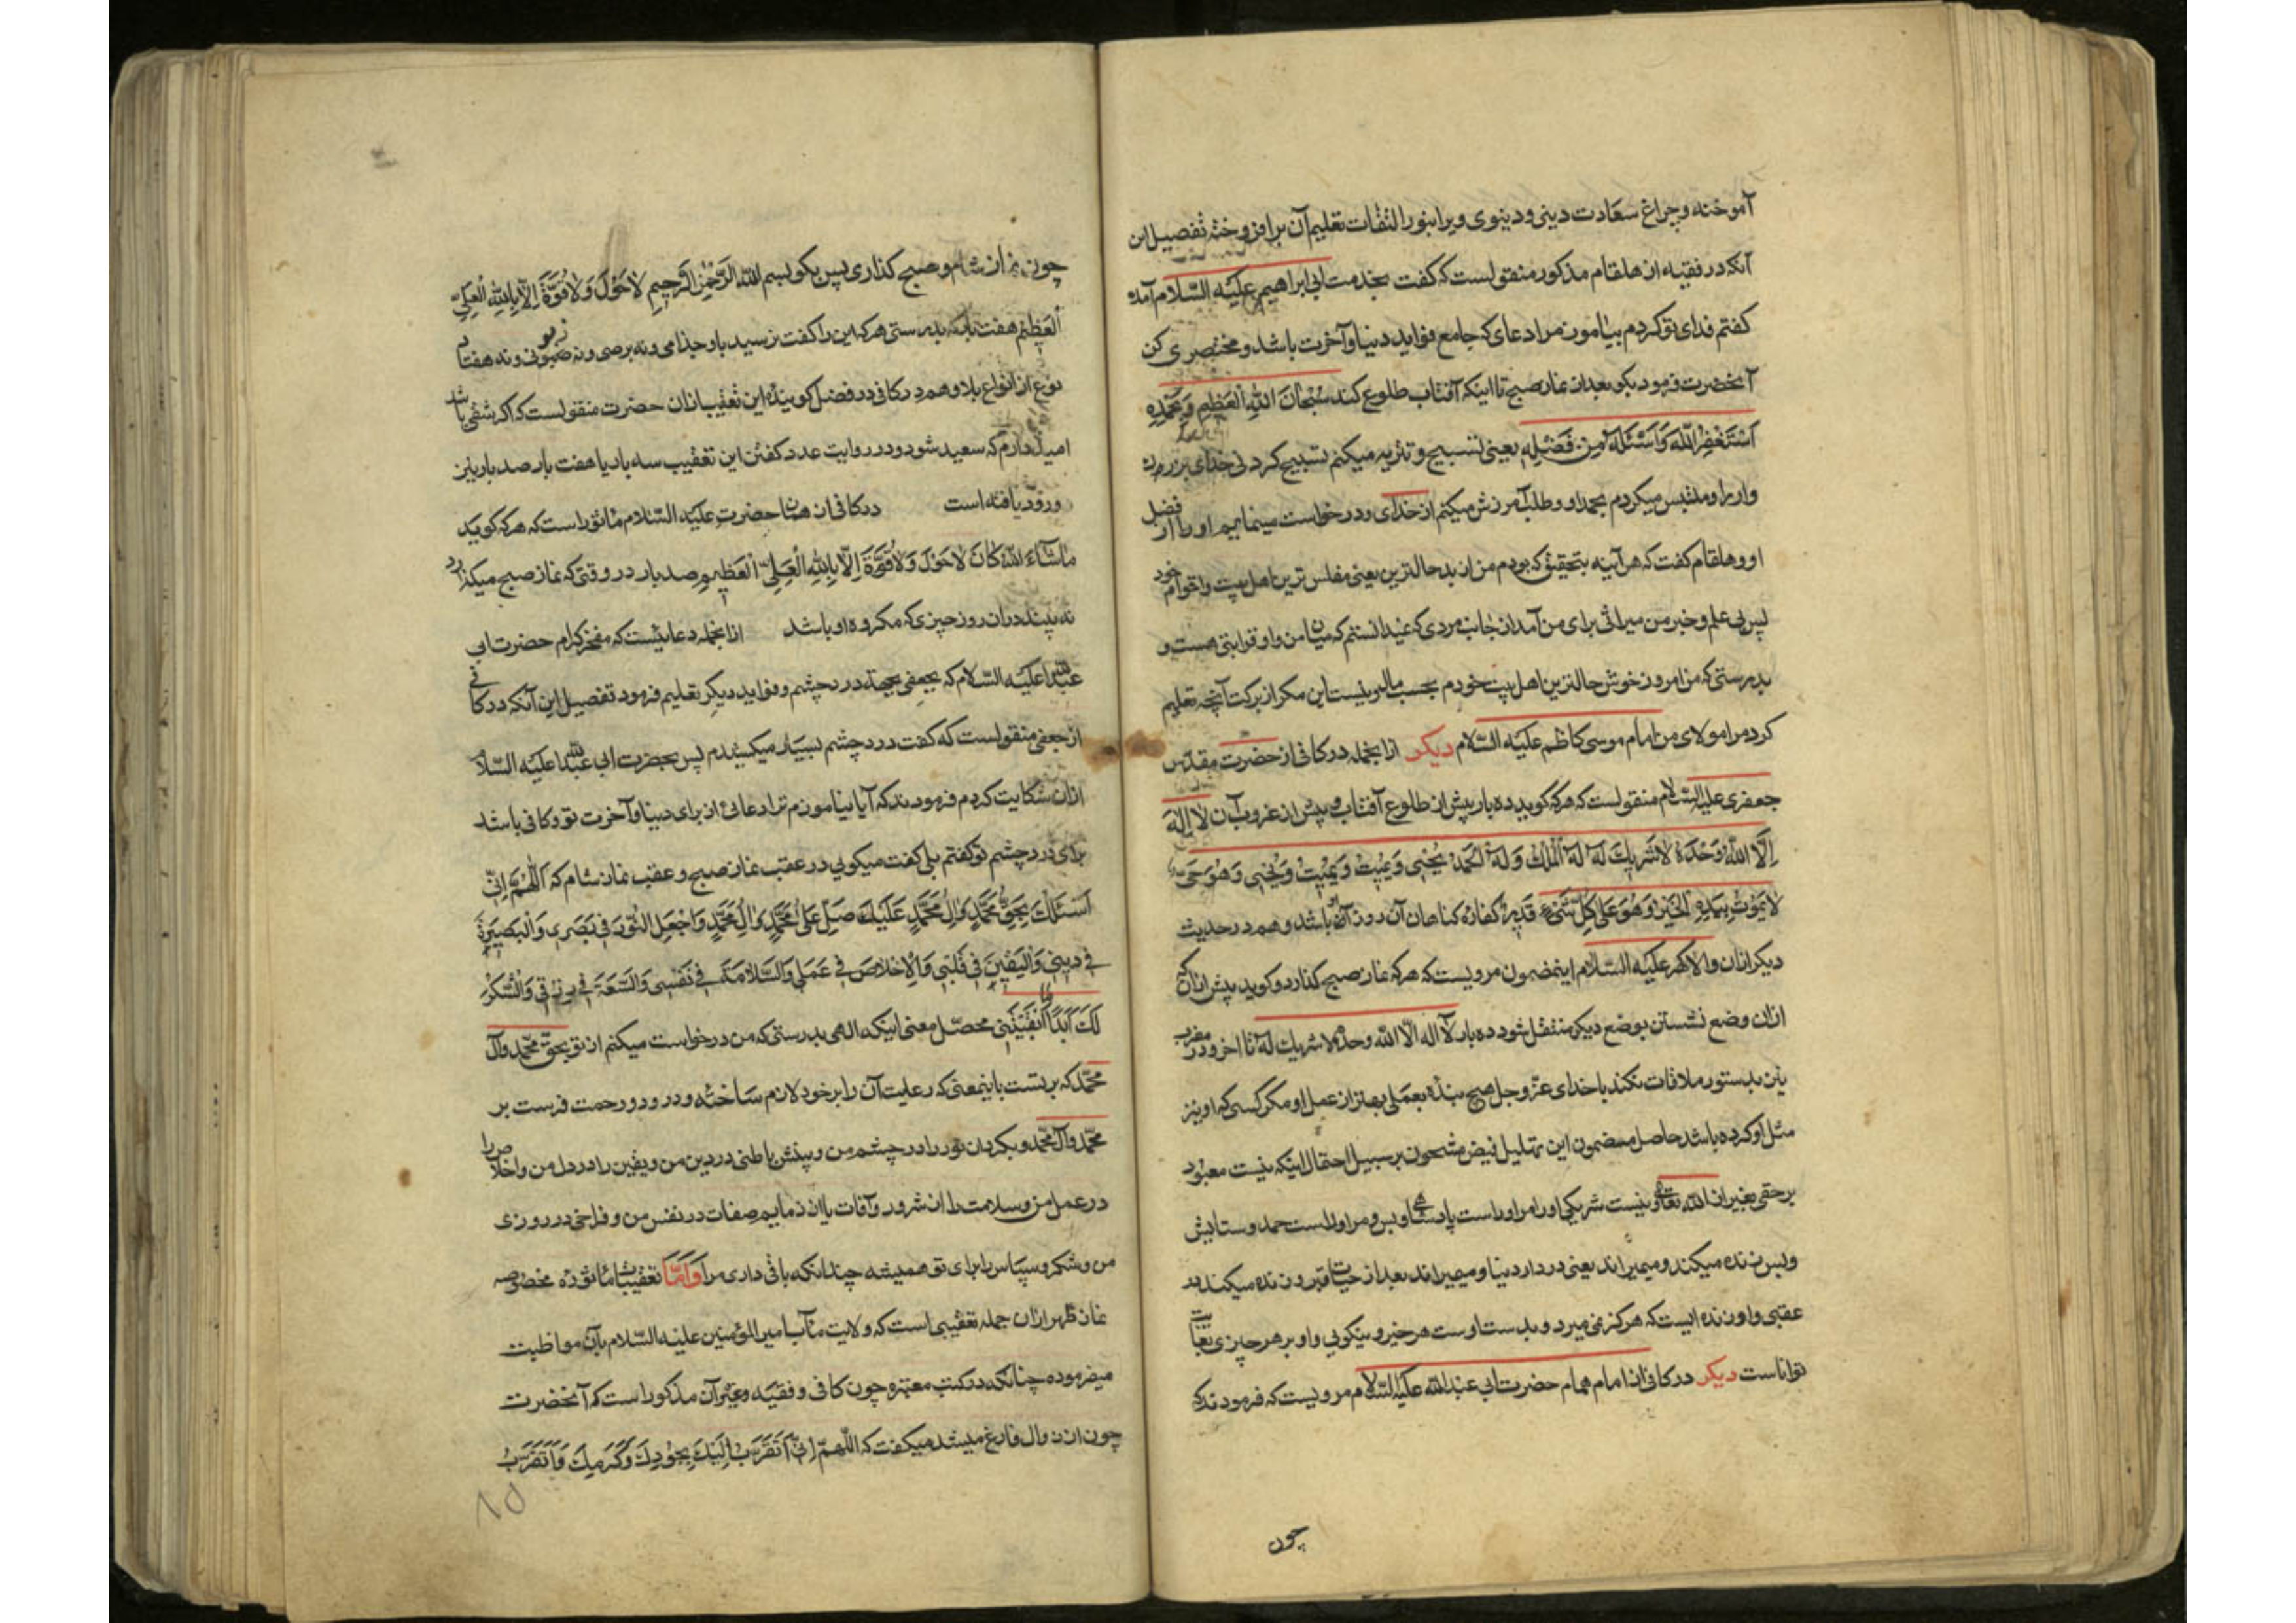 آموخته و چراغ سعادت دینی و دینوی ویرا بنور التفات تعلیم آن برافروخته تفصیل این
آنکه در فقیه از هلقام مذکور منقولست که گفت بخدمت ابی ابراهیم علیه السلام آمده
گفتم فدای تو کردم بیاموز مرا دعای که جامع فواید دنیا و آخرت باشد و مختصری کن
آنحضرت فرمود بکو بعد از نماز صبح تا اینکه آفتاب طلوع کند سُبْحَانَ اللهِ الْعَظِیمِ وَبِحَمْدِهِ
اَسْتَغْفِرُ اللهَ وَاَسْئَلُهُ مِن فَضْلِهِ یعنی تسبیح و تنزیه میکنم تسبیح کردنی خدای بزرک
و او را و ملتبس میکردم بحمد او و طلب آمرزش میکنم از خدای و درخواست مینمایم او را از فضل
او و هلقام گفت که هر آینه بتحقیق که بودم من از بد حالترین یعنی مفلس ترین اهل بیت و اقوام خود
پس بی علم و خبر من میراثی برای من آمد از جانب مردی که نمیدانستم که میان من و او قرابتی هست و
بدرستی که من امروز خوش حالترین اهل بیت خودم بحسب مال و نیست این مکر از برکت آنچه تعلیم
کرد مرا مولای من امام موسی کاظم علیه السّلام دیکر ازا بخمله در کافی از حضرت مقدّس
جعفری علیه السلام منقولست که هر که کوید ده بار پیش از طلوع آفتاب و پیش از غروب آن لا اِلٰهَ
اِلَّا اللهُ وَحْدَهُ لاشَرِیكَ لَهُ لَهُ الْمُلْكُ وَ لَهُ الْحَمْدُ یُحْیِی وَیُمِیتُ وَیُمِیتُ وَیُحْیِی وَهُوَ حَیٌّ
لایَمُوتُ بِیَدِهِ الْخَیْرُ وَهُوَ عَلیٰ کُلِّ شَیْءٍ قَدِیرٌ کفاره کناهان آن روز او باشد و هم در حدیث
دیکر ازان والا کهر علیه السّلام اینمضمون مرویست که هر که نماز صبح کذارد و کوید پیش ازان که
ازان وضع نشستن بوضع دیکر منتقل شود ده بار لآ اله الّا الله وحده لا شریك له تا اخر و در مغرب
نیز بدستور ملاقات نکند با خدای عزّ و جل هیچ بندۀ بعملی بهتر از عمل او مکر کسی که او نیز
مثل او کرده باشد حاصل مضمون این تهلیل فیض مشحون بر سبیل احتمال اینکه نیست معبود
بر حقی بغیر از الله تعالی و نیست شریکی او را مر او راست پادشاهی و بس و مر او راست حمد و ستایش
و بس زنده میکند و میمیراند یعنی در دار دنیا و میمیراند بعد از حیات قبر و زنده میکند در
عقبی و او زنده ایست که هرکز نمی میرد و بدست اوست هر خیر و نیکویی و او بر هر چیزی بغایت
تواناست دیکر در کافی از امام همام حضرت ابی عبد الله علیه السّلام مرویست که فرمودند که
چون
چون نماز شام و صبح کذاری پس بکو بسم الله الرَّحْمٰنِ الرَّحِیمِ لاحَوْلَ وَلاقُوَّةَ اِلّا بِاللهِ الْعَلِیِّ
الْعَظِیمِ هفت بار که بدرستی هر که این را کفت نرسید باو جذامی و نه برصی و نه جنونی و نه هفتاد
نوع از انواع بلا و هم در کافی در فضل کویندۀ این تعقیب ازان حضرت منقولست که اکر شقی باشد
امید دارم که سعید شود و در روایت عدد کفتن این تعقیب سه بار یا هفت بار صد بار نیز
ورود یافته است در کافی از همان حضرت علیه السّلام ماثور است که هر که کوید
ماشَآءَ اللهُ کانَ لاحَوْلَ وَلاقُوَّةَ اِلّا بِاللهِ الْعَلِیِّ الْعَظِیمِ صد بار در وقتی که نماز صبح میکذارد
نه بیند دران روز چیزی که مکروه او باشد ازا بخمله دعائیست که مفخر کرام حضرت ابی
عبد الله علیه السّلام که بجعفی بجهة درد چشم و فواید دیکر تعلیم فرمود تفصیل این آنکه در کافی
از جعفی منقولست که کفت درد چشم بسیار میکشیدم پس بحضرت ابی عبد الله علیه السّلام
ازان شکایت کردم فرمودند که آیا بیاموزم ترا دعائی از برای دنیا و آخرت تو و کافی باشد
برای درد چشم تو کفتم بلی کفت میکویی در عقب نماز صبح و عقب نماز شام که اَللّٰهُمَّ اِنِّی
اَسْئَلُكَ بِحَقِّ مُحَمَّدٍ وَالِ مُحَمَّدٍ عَلَیْكَ صَلِّ عَلیٰ مُحَمَّدٍ وَالِ مُحَمَّدٍ وَاجْعَلِ النُّورَ فِی بَصَرِی وَالْبَصِیرَةَ
فِی دِینِی وَالْیَقِینَ فِی قَلْبِی وَالْاِخْلاصَ فِی عَمَلِی وَالسَّلامَةَ فِی نَفْسِی وَالسَّعَةَ فِی رِزْقِی وَالشُّکْرَ
لَكَ اَبَدًا مَا اَبْقَیْتَنِی محصّل معنی اینکه الهی بدرستی که من درخواست میکنم از تو بحقّ محمّد و آل
محمّد که بر تست باینمعنی که رعایت آن را بر خود لازم ساخته و درود و رحمت فرست بر
محمّد و آل محمّد و بکردان نور را در چشم من و بینش باطنی در دین من و یقین را در دل من و اخلاص را
در عمل من و سلامت را از شرور و آفات یا از ذمایم صفات در نفس من و فراخی در روزی
من و شکر و سپاس را برای تو همیشه چندانکه باقی داری مرا وَاَمّا تعقیبات ماثوره مخصوصه
نماز ظهر ازان جمله تعقیبی است که ولایت مآب امیر المؤمنین علیه السّلام بآن مواظبت
میفرموده چنانکه در کتب معتبره چون کافی و فقیه و غیر آن مذکور است که آنحضرت
چون از زوال فارغ میشد میکفت که اللّٰهمّ اِنِّی اَتَقَرَّبُ اِلَیْكَ بِجُودِكَ وَکَرَمِكَ وَاَتَقَرَّبُ